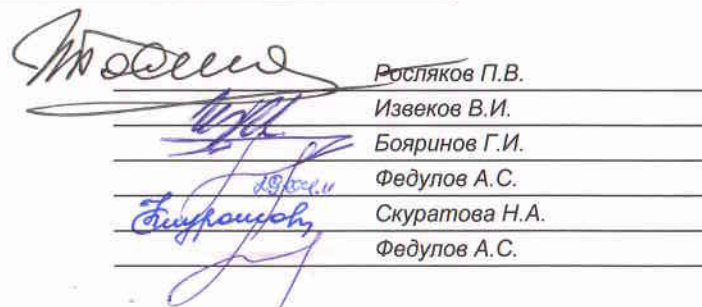 Росляков П.В.
Извеков В.И.
Бояринов Г.И.
Федулов А.С.
Скуратова Н.А.
Федулов А.С.